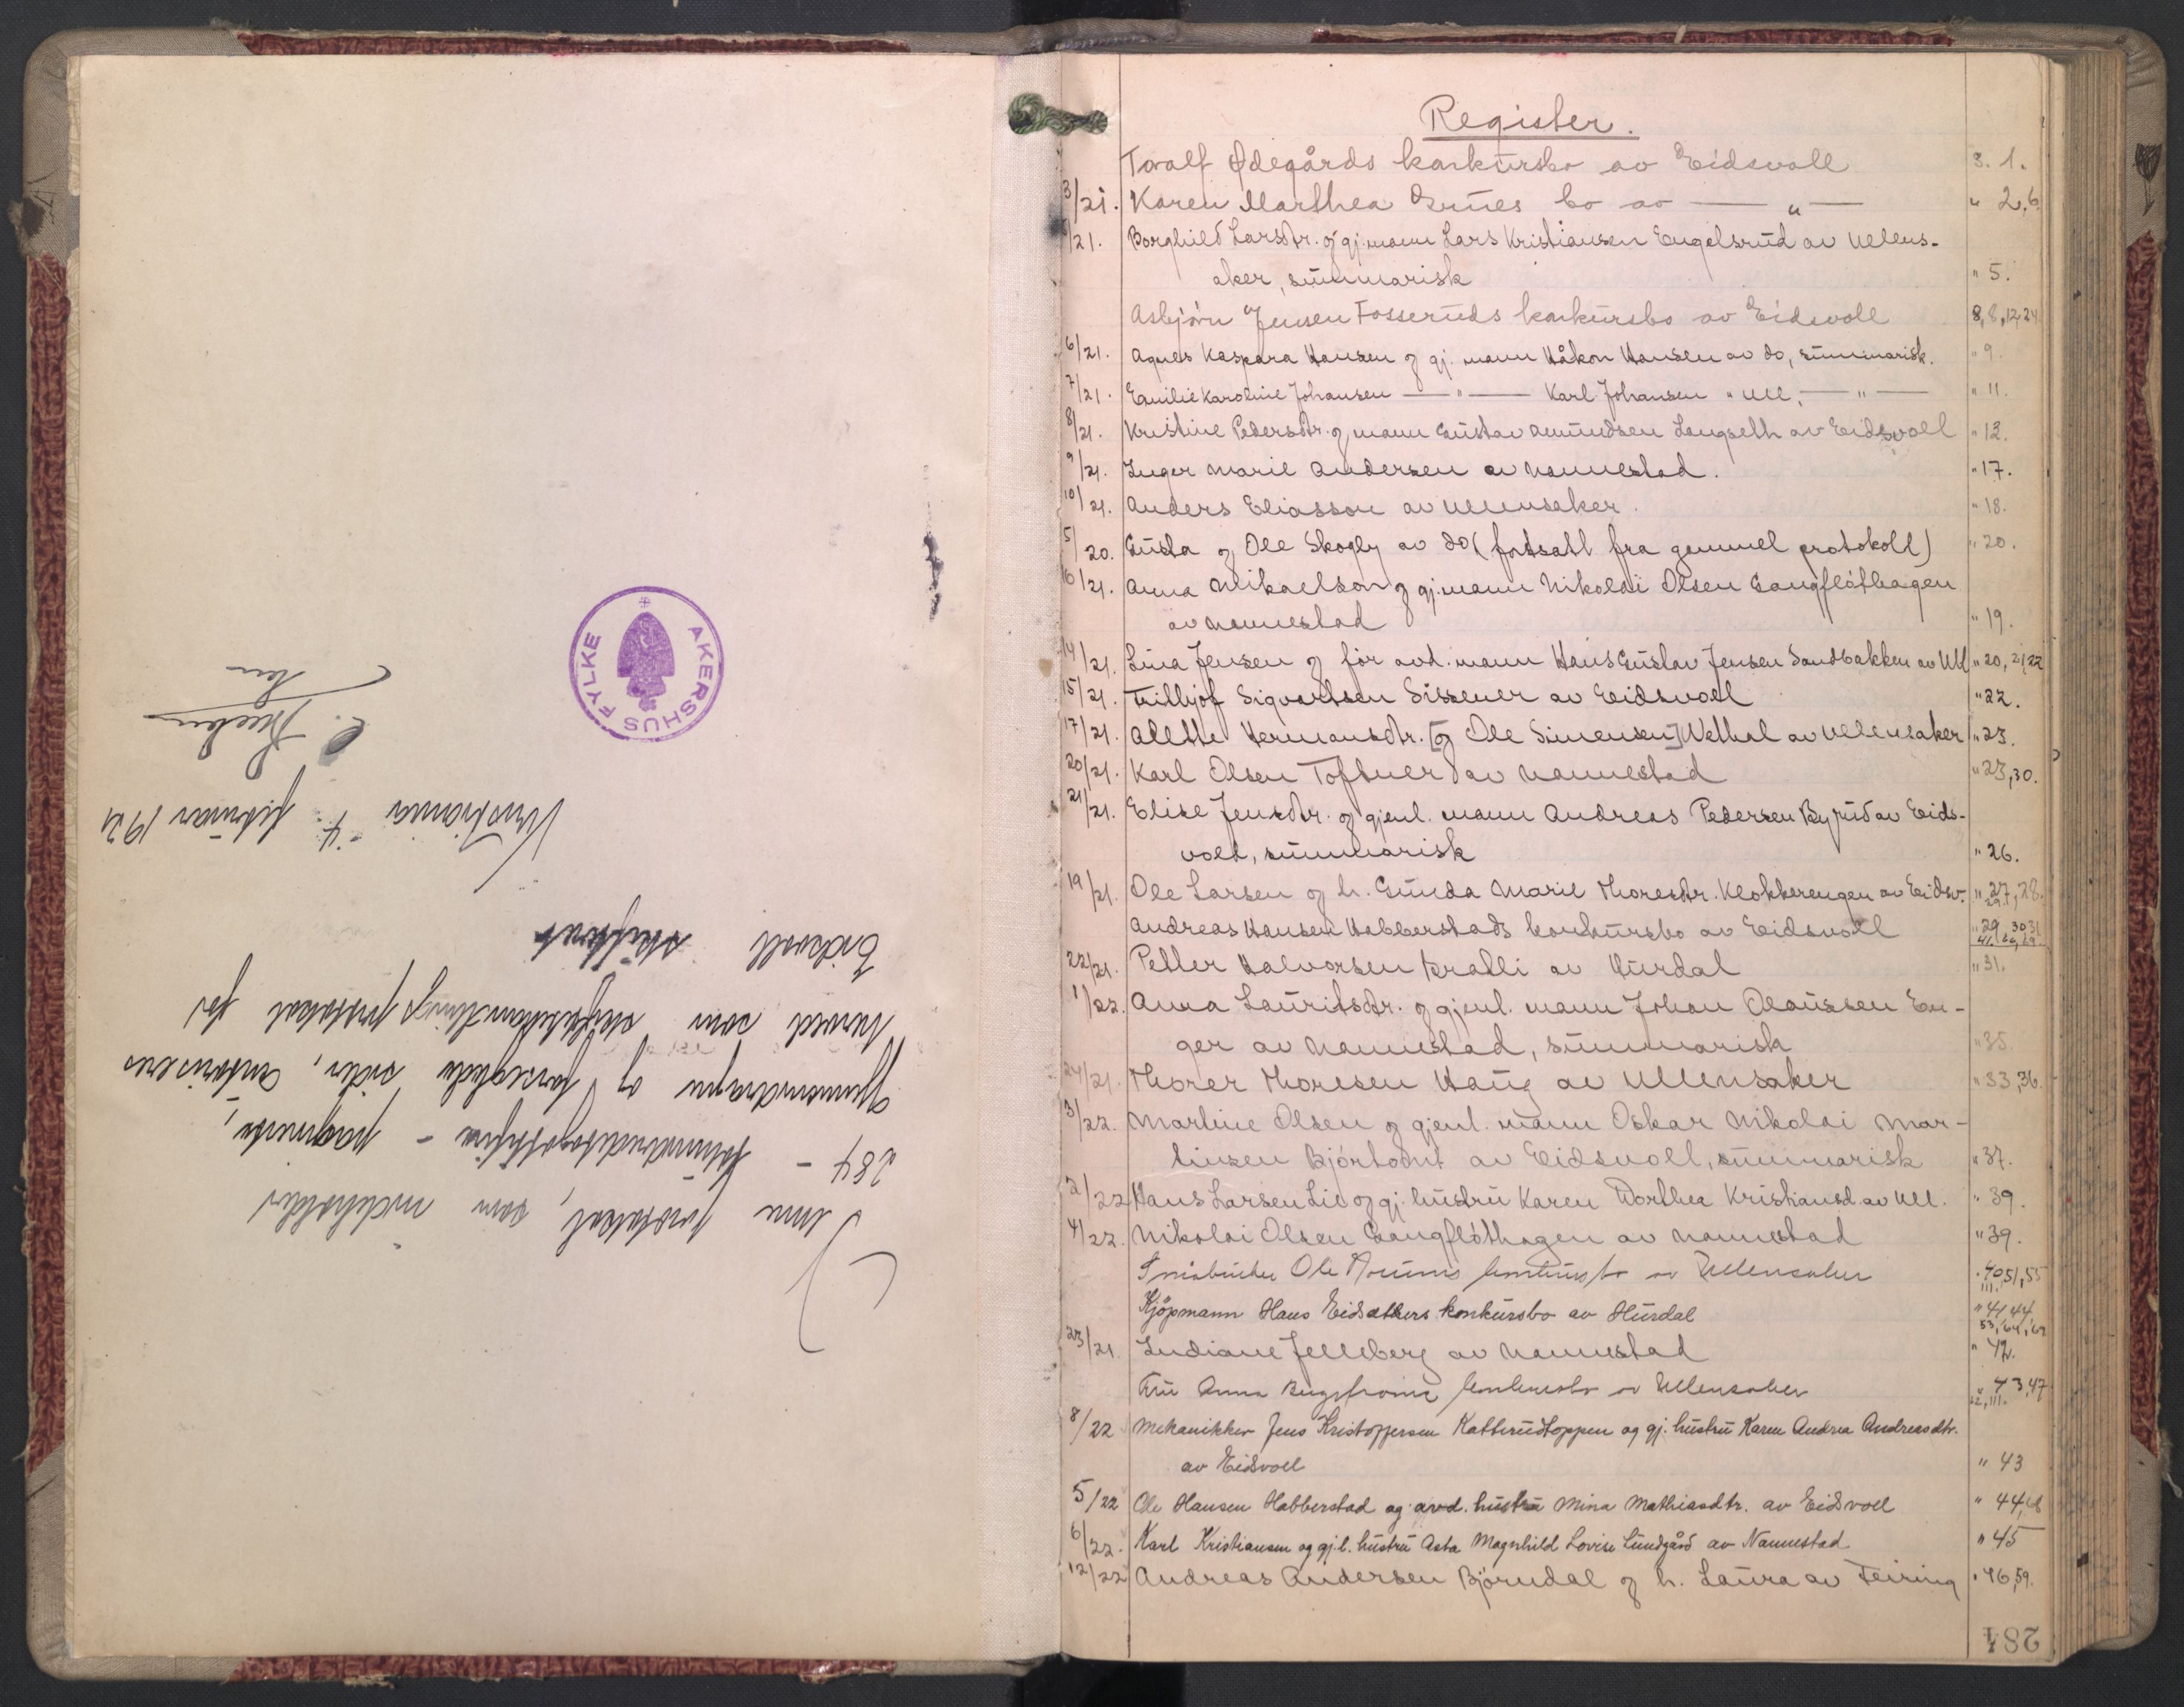 Denne protokol, som indeholder
284 - tohundredeogottifire - paginerte,
gjennemdragne og forseglede sider, autoriseres
herved som skiftebehandlingsprotokol for
Eidsvoll skifteret
Kristiania 4 februar 1921
AKERSHUS FYLKE
Register.
Toralf Ødegårds konkursbo av Eidsvoll s. 1.
3/21. Karen Marthea bo av — " — " 2, 6.
/21. Borghild Larsdtr. og gj. mann Lars Kristiansen Engelsrud av Ullens-
aker, summarisk " 5.
Asbjørn Jensen Fosseruds konkursbo av Eidsvoll 8, 8, 12, 24
6/21. Agnes Kaspara Hansen og gj. mann Håkon Hansen av do, summarisk. " 9.
7/21. Emilie Karoline Johansen — " — Karl Johansen " Ull, — " — " 11.
8/21. Kristine Pedersdtr. og mann Gustav Amundsen Langseth av Eidsvoll " 13.
9/21. Inger Marie Andersen av Nannestad. " 17.
10/21. Anders Eliasson av Ullensaker. " 18.
5/20. Gusta og Ole Skogly av do (fortsatt fra gammel protokoll) " 20.
16/21. Anna Mikaelson og gj. mann Nikolai Olsen Gangfløthagen
av Nannestad " 19.
14/21. Lina Jensen og før avd. mann Hans Gustav Jensen Sandbakken av Ull " 20, 21, 22
15/21. Frithjof Sigvartsen Sissener av Eidsvoll " 22.
17/21. Alette Hermansdtr. [og Ole Simensen] Wethal av Ullensaker " 23.
20/21. Karl Olsen Toftner av Nannestad " 23, 30.
21/21. Elise Jensdtr. og gjenl. mann Andreas Pedersen Byrud av Eids-
voll, summarisk " 26.
19/21. Ole Larsen og h. Gunda Marie Thoresdtr. Klokkerengen av Eidsv. " 27, 28. 29.
Andreas Hansen Habberstads konkursbo av Eidsvoll " 29, 30, 31
22/21. Petter Halvorsen Bratli av Hurdal " 31.
1/22. Anna Lauritsdtr. og gjenl. mann Johan Olaussen En-
ger av Nannestad, summarisk " 35.
24/21. Thorer Thoresen Haug av Ullensaker " 33, 36.
3/22. Martine Olsen og gjenl. mann Oskar Nikolai Mar-
tinsen Bjørtomt av Eidsvoll, summarisk " 37.
2/22 Hans Larsen Lie og gj. hustru Karen Dorthea Kristiansd. av Ull. " 39.
4/22. Nikolai Olsen Gangfløthagen av Nannestad " 39.
Ole konkursbo av Ullensaker " 40, 51, 55
111.
Kjøpmann Hans Eidsæthers konkursbo av Hurdal " 41, 44
53, 64, 69
23/21. Ludiane Jelleberg av Nannestad " 42.
Fru Anna konkursbo av Ullensaker " 43, 47
8/22 Mekanikker Jens Kristoffersen Katterudtoppen og gj. hustru Karen Andrea Andreasdtr.
av Eidsvoll " 43
5/22 Ole Hansen Habberstad og avd. hustru Mina Mathiasdtr. av Eidsvoll " 44,
6/22. Karl Kristiansen og gj.l. hustru Asta Magnhild Lovise Lundgård av Nannestad " 45
12/22 Andreas Andersen Bjørndal og h. Laura av Feiring " 46, 59.
284